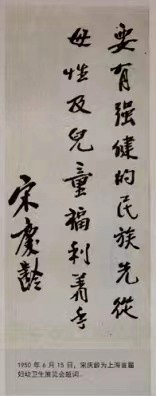 要有强健的民族先從
母性及兒童福利着手
宋慶龄
1950 年 6 月 15 日，宋庆龄为上海首届
妇幼卫生展览会题词。